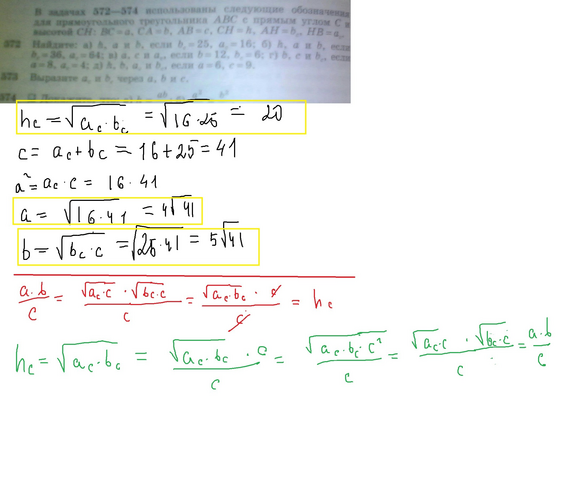 В задачах 572—574 использованы следующие обозначения
для прямоугольного треугольника ABC с прямым углом C и
высотой CH: BC=a, CA=b, AB=c, CH=h, AH=b_c, HB=a_c.
572 Найдите: а) h, a и b, если b_c=25, a_c=16; б) h, a и b, если
b_c=36, a_c=64; в) a, c и a_c, если b=12, b_c=6; г) b, c и b_c, если
a=8, a_c=4; д) h, b, a_c и b_c, если a=6, c=9.
573 Выразите a_c и b_c через a, b и c.
h_c = √(a_c·b_c) = √(16·25) = 20
c = a_c + b_c = 16 + 25 = 41
a² = a_c·c = 16·41
a = √(16·41) = 4√41
b = √(b_c·c) = √(25·41) = 5√41
a·b/c = √(a_c·c)·√(b_c·c)/c = √(a_c·b_c)·c/c = h_c
h_c = √(a_c·b_c) = √(a_c·b_c)·c/c = √(a_c·b_c·c²)/c = √(a_c·c)·√(b_c·c)/c = a·b/c